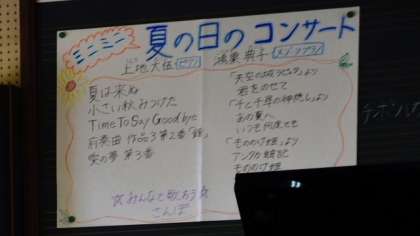 ミニミニ
夏の日のコンサート
ピアノ
メゾソプラノ
夏は来ぬ
小さい秋みつけた
Time To Say Goodbye
前奏曲 作品3 第2番「鐘」
愛の夢 第3番
「天空の城ラピュタ」より
君をのせて
「千と千尋の神隠し」より
あの夏へ
いつも何度でも
「もののけ姫」より
もののけ姫
☆みんなで歌おう☆
さんぽ